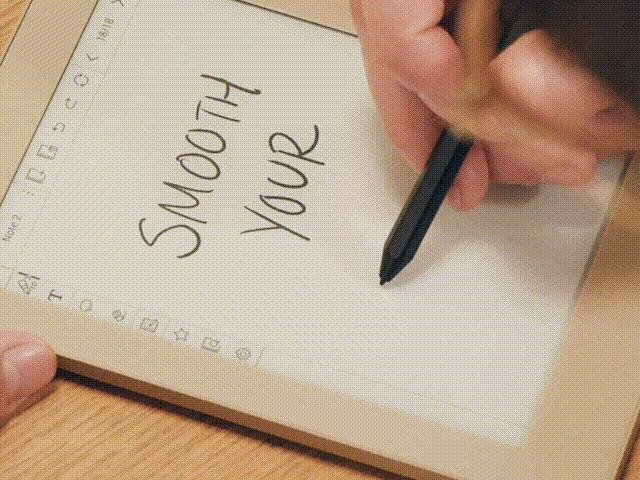 Note2
18/18
T
SMOOTH
YOUR